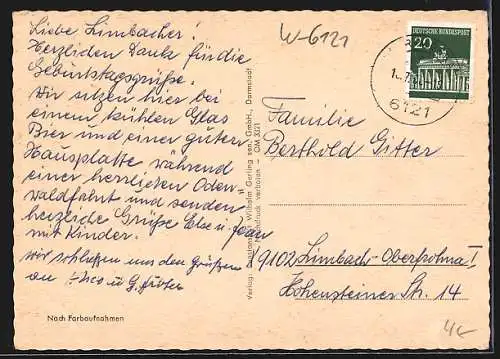 Liebe Limbacher!
Herzlichen Dank für die
Geburtstagsgrüße.
Wir sitzen hier bei
einem kühlen Glas
Bier und einer guten
Hausplatte während
einer herrlichen Oden-
waldfahrt und senden
herzliche Grüße Else u.
mit Kinder.
wir schließen uns den Grüßen
an
Nach Farbaufnahmen
W-6121
DEUTSCHE BUNDESPOST
20
6121
Familie
Berthold Gitter
9102 Limbach-Oberfrohna I,
Hohensteiner Str. 14
Wilhelm Gerling sen. GmbH., Darmstadt
Nachdruck verboten — OM 3321
4,-